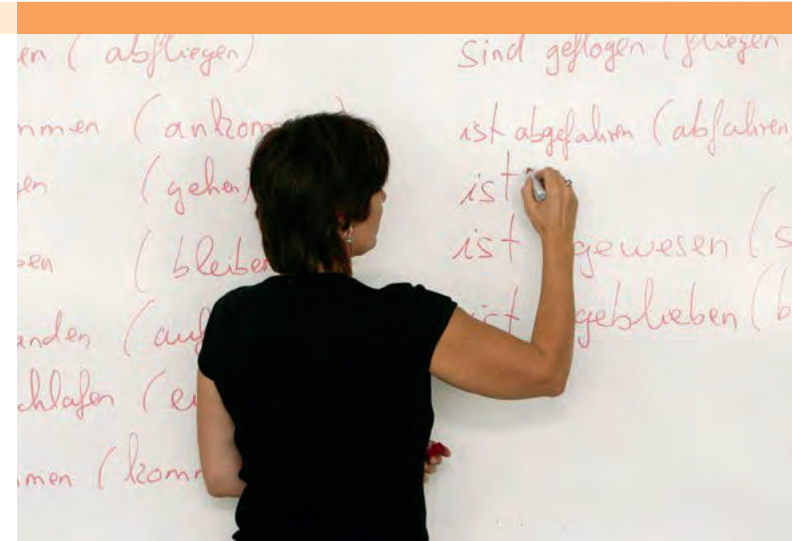 en (abfliegen)
mmen (ankom
(gehen)
ben (bleiben
anden (auf
chlafen (ei
mmen (komm
sind geflogen (fliegen
ist abgefahren (abfahren
ist
ist gewesen (s
ist geblieben (b